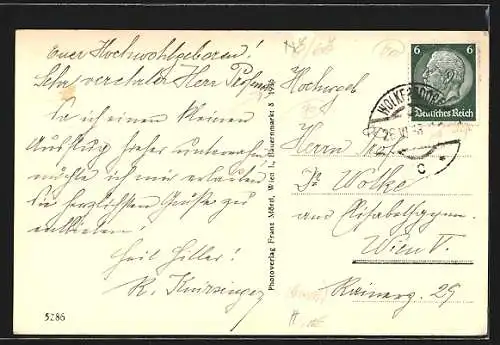 Euer Hochwohlgeboren!
Sehr verehrter Herr Professor
Da ich einen kleinen
Ausflug hieher unternahm
möchte ich mir erlauben
Sie herzlichsten Grüße zu
entbieten!
Heil Hitler!
R. Thürsinger
5286
Photoverlag Franz Mörtl, Wien I., Bauernmarkt 3 1936
6 6
Deutsches Reich
WOLKERSDORF
c
Hochwgeb
Herrn Professor
Dr Wolke
am Elisabethgymn.
Wien V.
Rainerg. 29